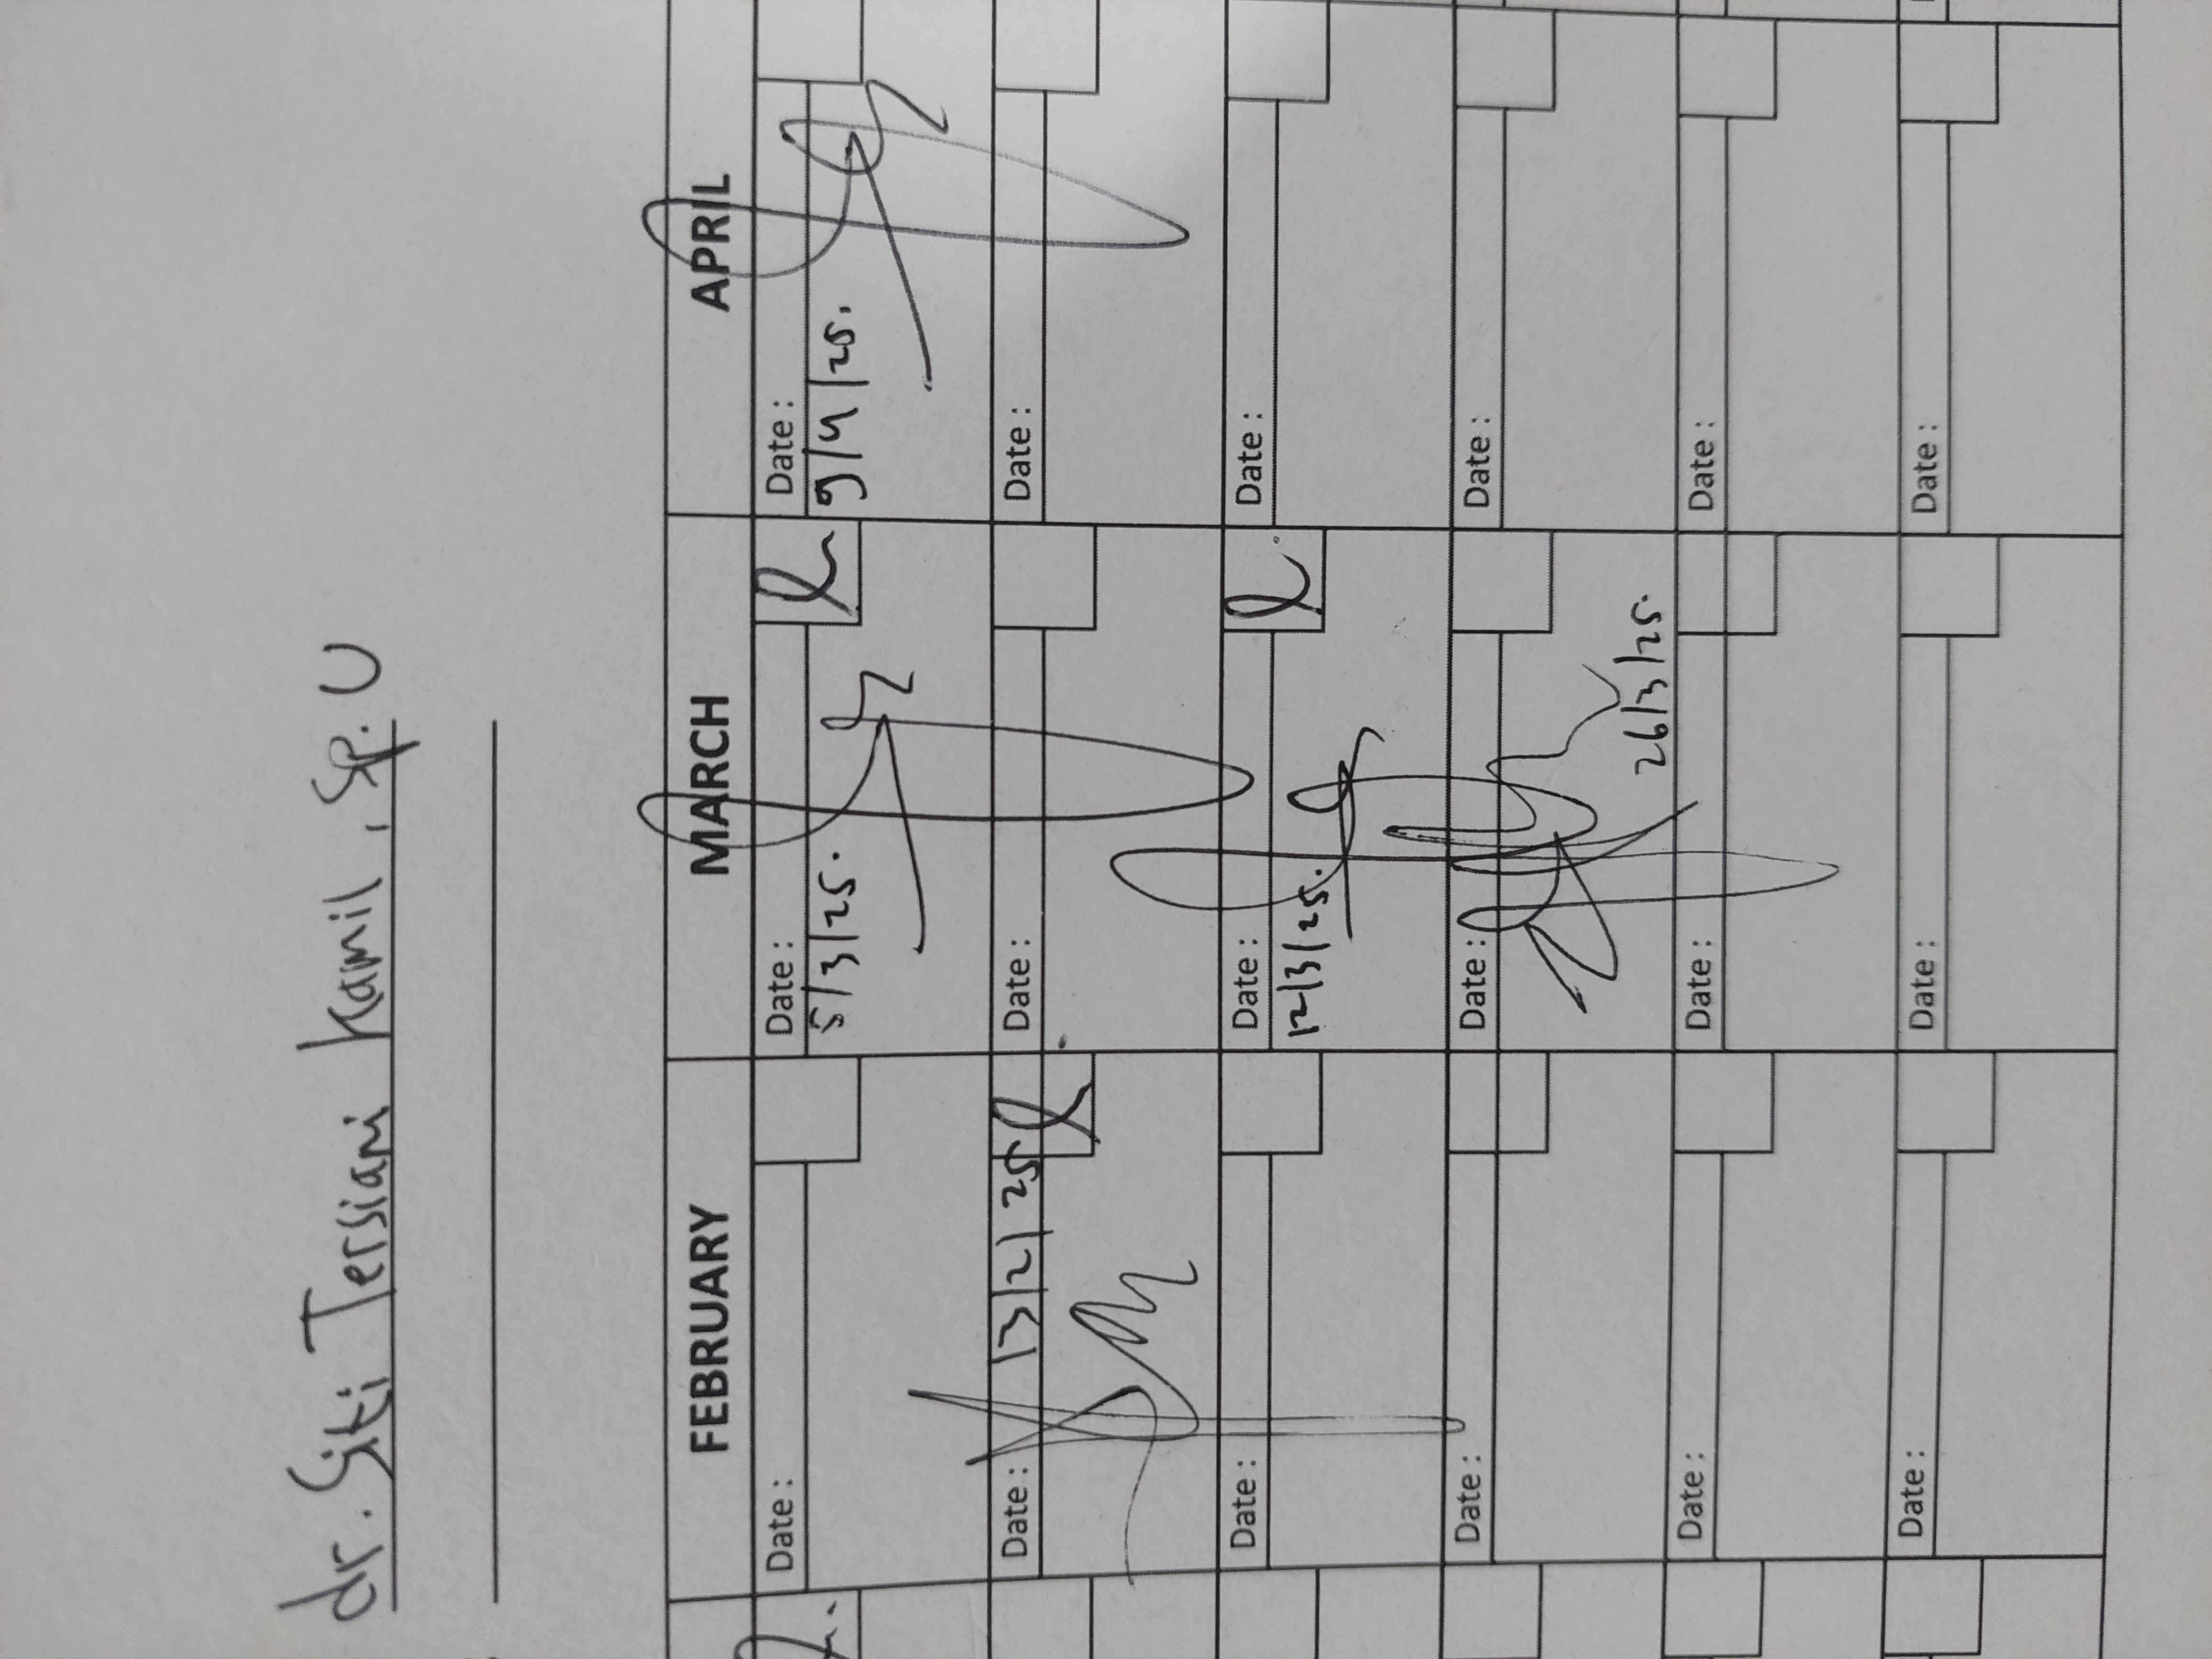 dr. Siti Tersiani Kamil, Sp. U
FEBRUARY MARCH APRIL
Date : Date : Date :
5/3/25. 9/4/25.
Date : 13/2/25 Date : Date :
Date : Date : Date :
12/3/25.
Date : Date : Date :
26/3/25.
Date : Date : Date :
Date : Date : Date :